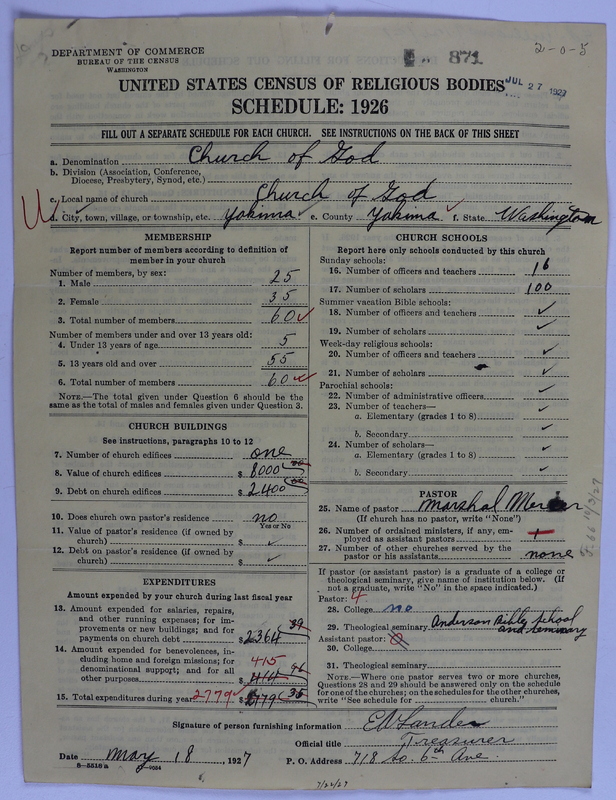 DEPARTMENT OF COMMERCE
BUREAU OF THE CENSUS
WASHINGTON
871
2-0-5
JUL 27 1927
UNITED STATES CENSUS OF RELIGIOUS BODIES
SCHEDULE: 1926
FILL OUT A SEPARATE SCHEDULE FOR EACH CHURCH. SEE INSTRUCTIONS ON THE BACK OF THIS SHEET
a. Denomination Church of God
b. Division (Association, Conference,
Diocese, Presbytery, Synod, etc.)
c. Local name of church Church of God
d. City, town, village, or township, etc. Yakima e. County Yakima f. State Washington
MEMBERSHIP
Report number of members according to definition of
member in your church
Number of members, by sex:
1. Male 25
2. Female 35
3. Total number of members 60 ✓
Number of members under and over 13 years old:
4. Under 13 years of age 5
5. 13 years old and over 55
6. Total number of members 60 ✓
NOTE.—The total given under Question 6 should be
same as the total of males and females given under Question 3.
CHURCH BUILDINGS
See instructions, paragraphs 10 to 12
7. Number of church edifices one
8. Value of church edifices $ 8000 00
9. Debt on church edifices $ 2400 00
10. Does church own pastor's residence no
Yes or No
11. Value of pastor's residence (if owned by
church) $ ✓
12. Debt on pastor's residence (if owned by
church) $ ✓
EXPENDITURES
Amount expended by your church during last fiscal year
13. Amount expended for salaries, repairs,
and other running expenses; for im-
provements or new buildings; and for
payments on church debt $ 2364 39
14. Amount expended for benevolences, in-
cluding home and foreign missions; for
denominational support; and for all
other purposes 415 $ 414 96
15. Total expenditures during year 2779 ✓ $ 2779 35
CHURCH SCHOOLS
Report here only schools conducted by this church
Sunday schools:
16. Number of officers and teachers 16
17. Number of scholars 100
Summer vacation Bible schools:
18. Number of officers and teachers ✓
19. Number of scholars ✓
Week-day religious schools:
20. Number of officers and teachers ✓
21. Number of scholars ✓
Parochial schools:
22. Number of administrative officers ✓
23. Number of teachers—
a. Elementary (grades 1 to 8) ✓
b. Secondary ✓
24. Number of scholars—
a. Elementary (grades 1 to 8) ✓
b. Secondary ✓
PASTOR
25. Name of pastor Marshal
(If church has no pastor, write "None")
26. Number of ordained ministers, if any, em-
ployed as assistant pastors 1
27. Number of other churches served by the
pastor or his assistants none
If pastor (or assistant pastor) is a graduate of a college or
theological seminary, give name of institution below. (If
not a graduate, write "No" in the space indicated.)
Pastor: 4
28. College no
29. Theological seminary Anderson Bible School
and Seminary
Assistant pastor: 0
30. College
31. Theological seminary
NOTE.—Where one pastor serves two or more churches,
Questions 28 and 29 should be answered only on the schedule
for one of the churches; on the schedules for the other churches,
write "See schedule for church."
Signature of person furnishing information
Official title Treasurer
Date May 18, 1927 P. O. Address 718 So. 6th Ave.
8—5518 a
7/22/27